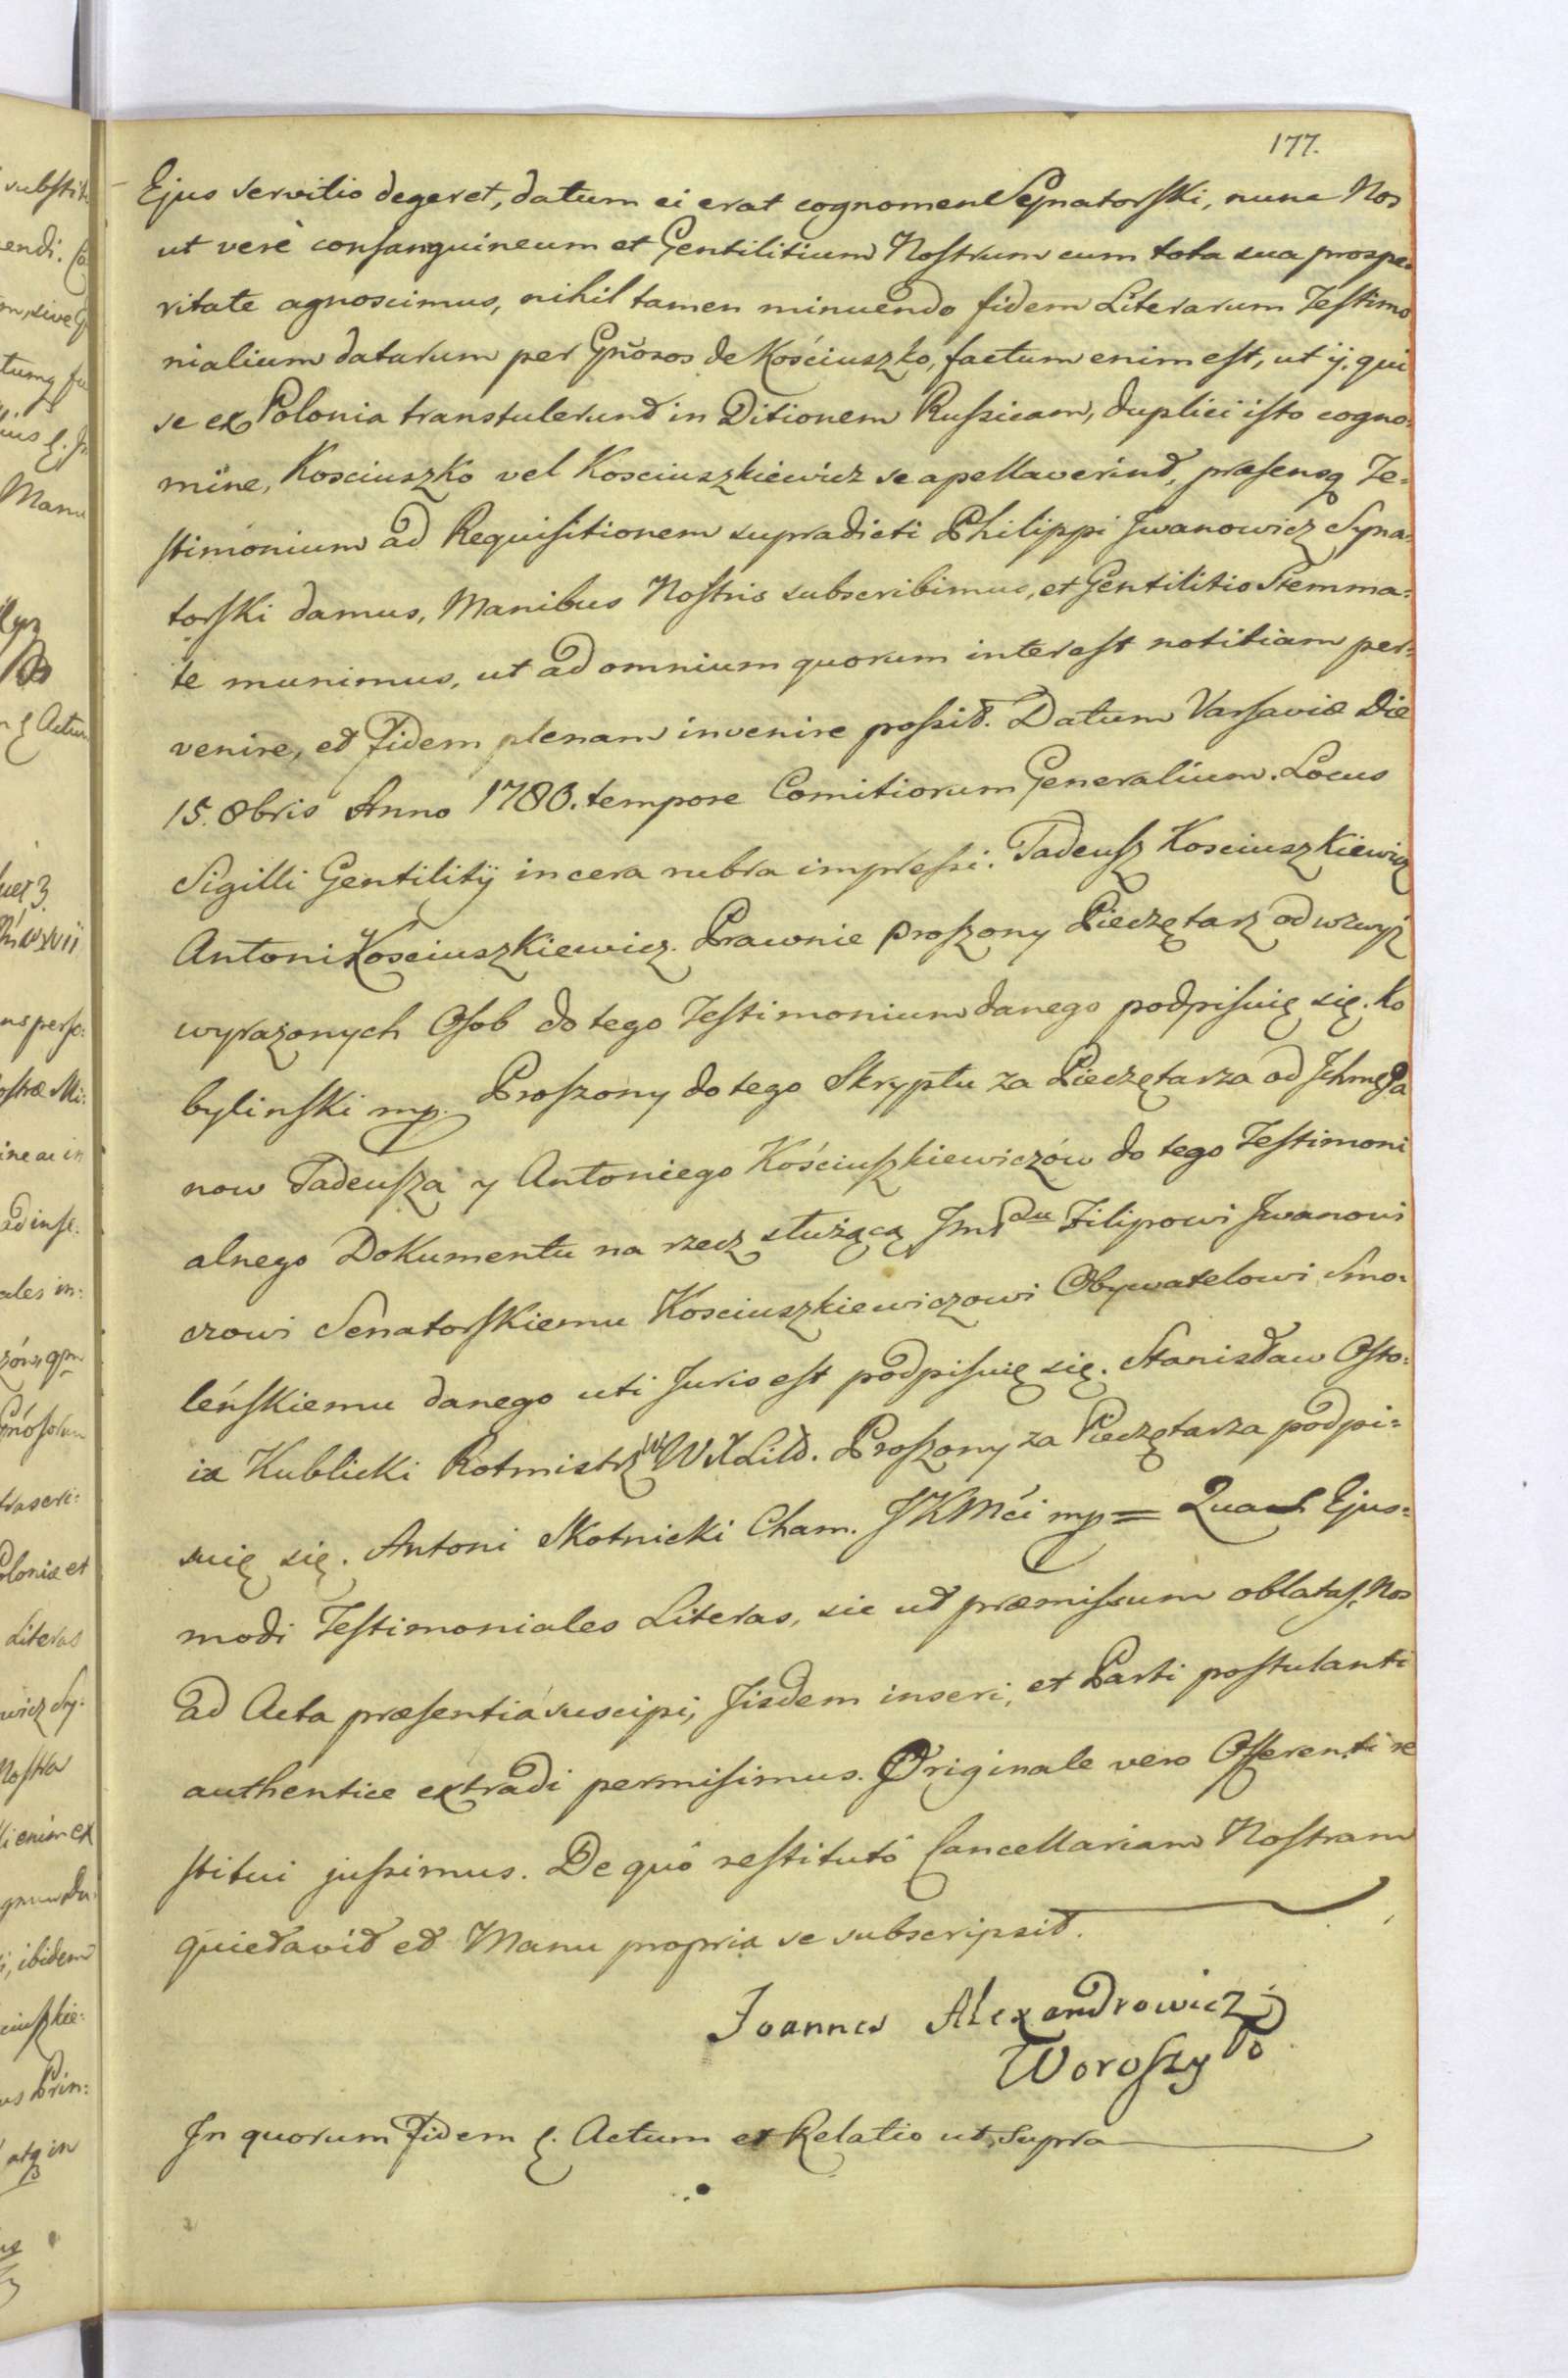 177.
Ejus servitio degeret, datum ei erat cognomen Synatorski, nunc Nos
ut verè consanguineum et Gentilitium Nostrum cum tota sua prospe-
ritate agnoscimus, nihil tamen minuendo fidem Literarum Testimo
nialium datarum per Gñosos de Kościuszko, factum enim est, ut ij. qui
se ex Polonia transtulerunt in Ditionem Russicam, duplici isto cogno-
mine, Kosciuszko vel Kosciuszkiewicz se apellaverint, præsensq Te-
stimonium ad Requisitionem supradicti Philippi Iwanowicz Syna-
torski damus, Manibus Nostris subscribimus, et Gentilitio Stemma-
te munimus, ut ad omnium quorum interest notitiam per-
venire, et Fidem plenam invenire possit. Datum Varsaviæ Die
15. 8bris Anno 1780. tempore Comitiorum Generalium. Locus
Sigilli Gentilitij in cera rubra impressi. Tadeusz Kosciuszkiewicz
Antoni Kosciuszkiewicz. Prawnie proszony Pieczętarz od wzwyż
wyrazonych Osob do tego Testimonium danego podpisuię się. Ko
bylinski mp. Proszony do tego Skryptu za Pieczętarza od Ichmę Pa
now Tadeusza y Antoniego Kościuszkiewiczów do tego Testimoni
alnego Dokumentu na rzecz służącą Filipowi Iwanowi
czowi Senatorskiemu Kosciuszkiewiczowi Obywatelowi Smo-
leńskiemu danego uti Juris est podpisuię się. Stanisław Osto-
ia Kublicki Rotmistrz W X Litt. Proszony za Pieczętarza podpi-
suię się. Antoni Skotnicki Cham. JKMći mp = Quas Ejus-
modi Testimoniales Literas, sic ut præmissum oblatas, Nos
ad Acta præsentia suscipi, Iisdem inseri, et Parti postulanti
authentice extradi permisimus. Originale vero Offerenti re
stitui jussimus. De quò restitutò Cancellariam Nostram
quietavit et Manu propria se subscripsit.
Joannes Alexandrowicz
Woroszyło
In quorum Fidem Actum et Relatio ut supra